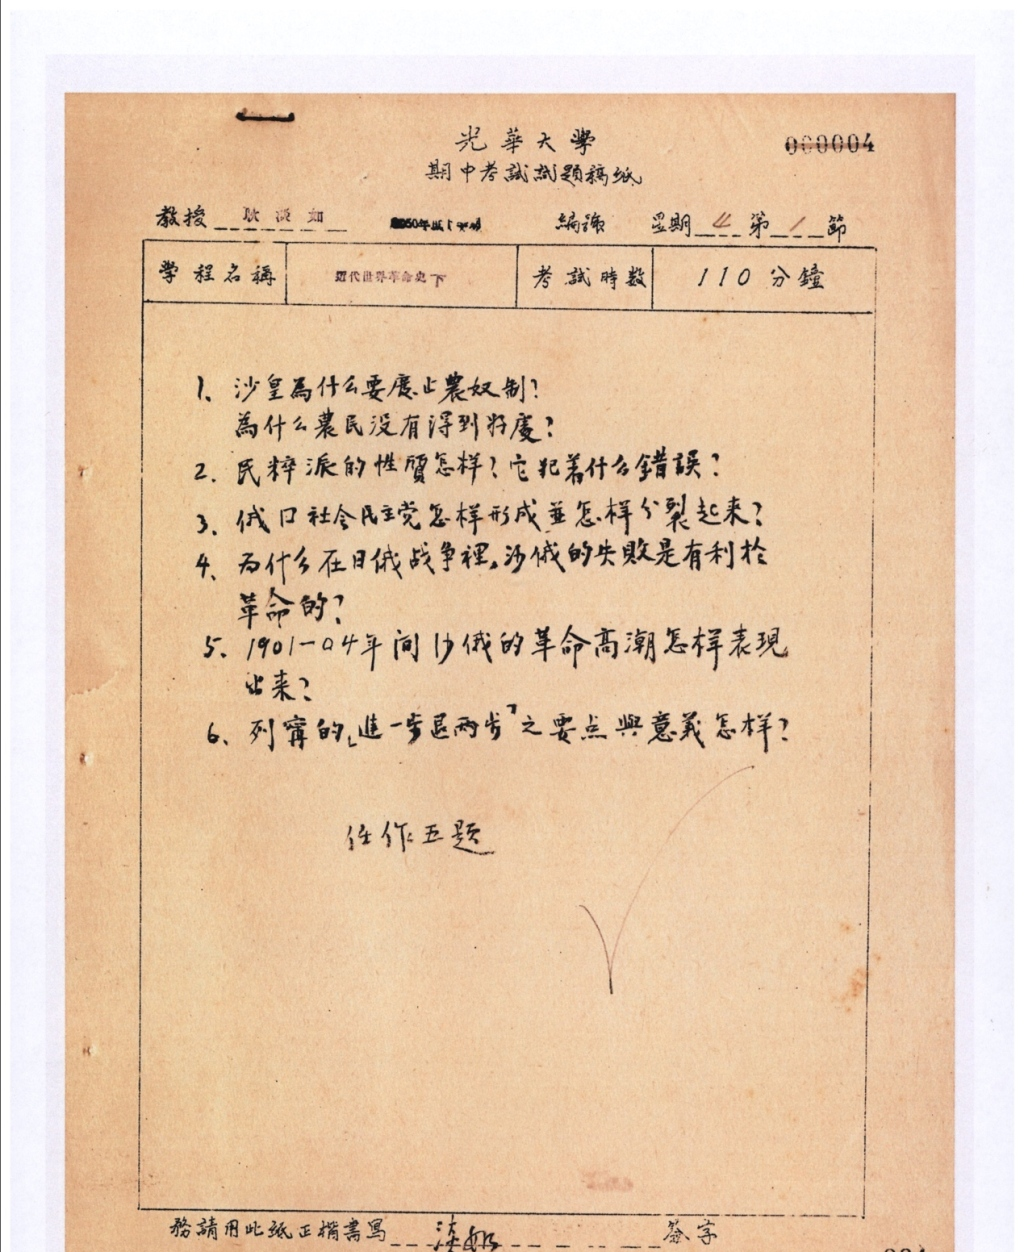 光華大學
000004
期中考試試題稿紙
教授 耿淡如 編號 星期 4 第 1 節
學程名稱 近代世界革命史下 考試時數 110分鐘
1、沙皇為什么要废止農奴制?
為什么農民没有得到好處?
2、民粹派的性質怎样?它犯着什么錯誤?
3、俄囗社会民主党怎样形成並怎样分裂起来?
4、为什么在日俄战争裡,沙俄的失敗是有利於
革命的?
5、1901-04年间沙俄的革命高潮怎样表現
出来?
6、列寧的「進一步退兩步」之要点與意義怎样?
任作五题
務請用此紙正楷書寫 淡如 簽字